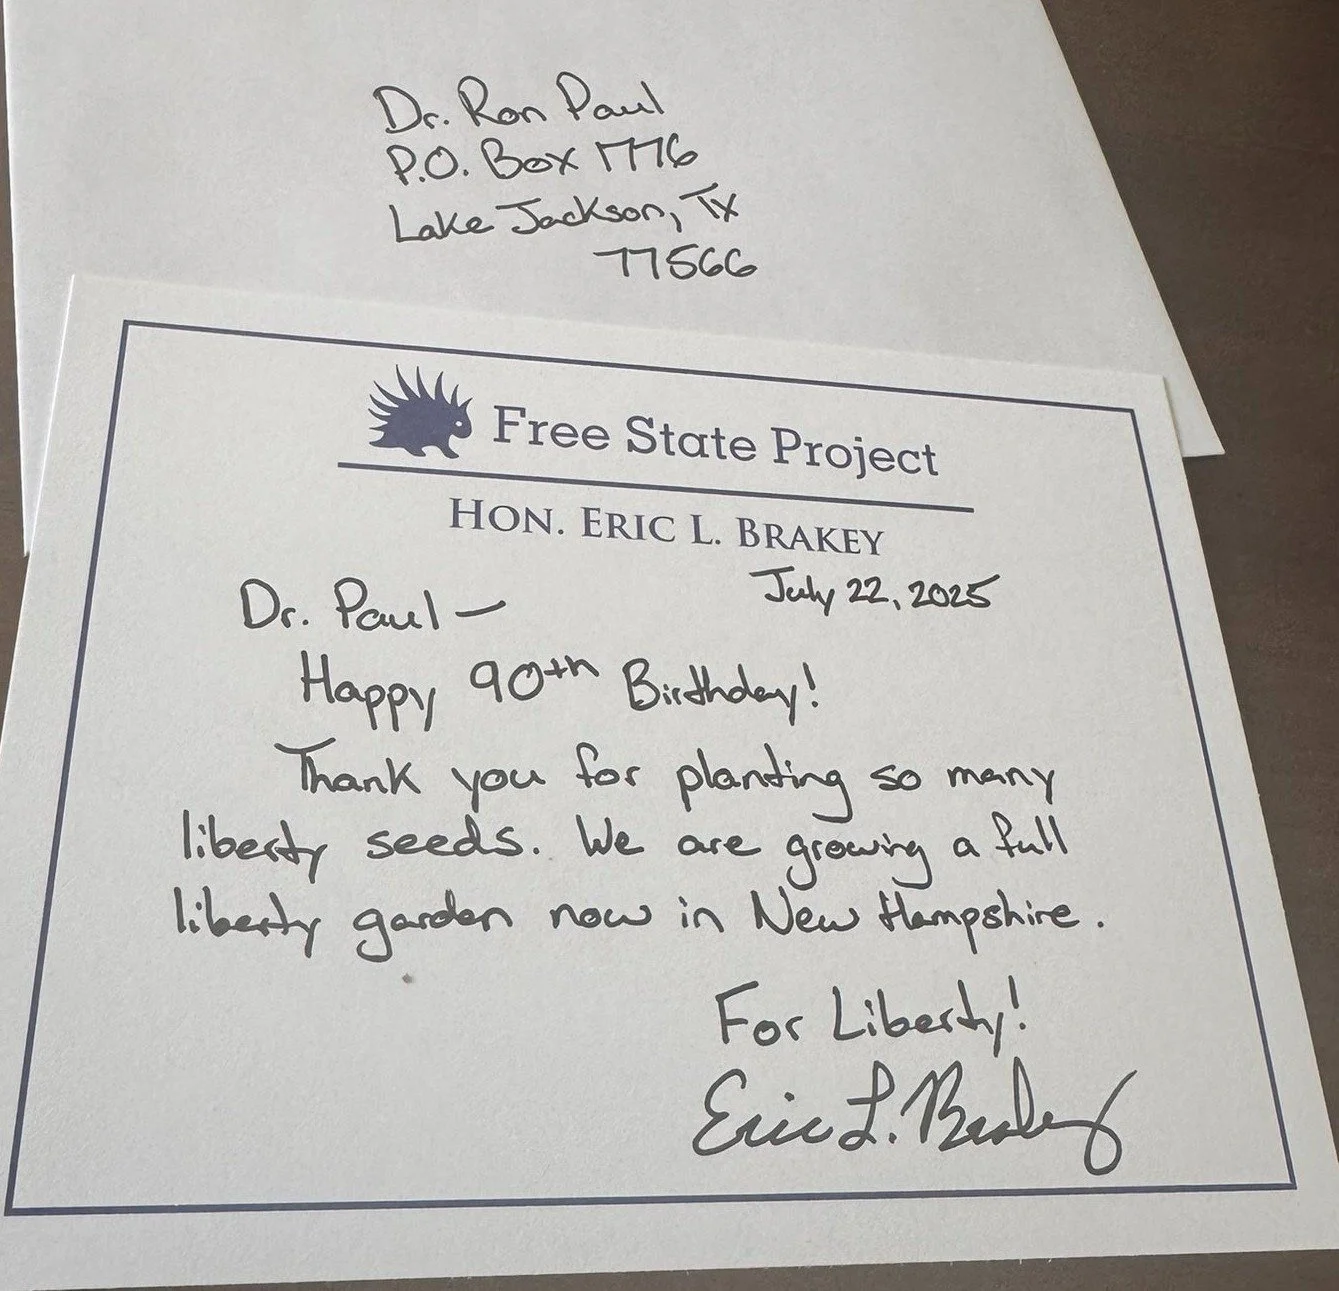 Dr. Ron Paul
P.O. Box 1776
Lake Jackson, Tx
77566
Free State Project
HON. ERIC L. BRAKEY
July 22, 2025
Dr. Paul –
Happy 90th Birthday!
Thank you for planting so many
liberty seeds. We are growing a full
liberty garden now in New Hampshire.
For Liberty!
Eric L. Brakey